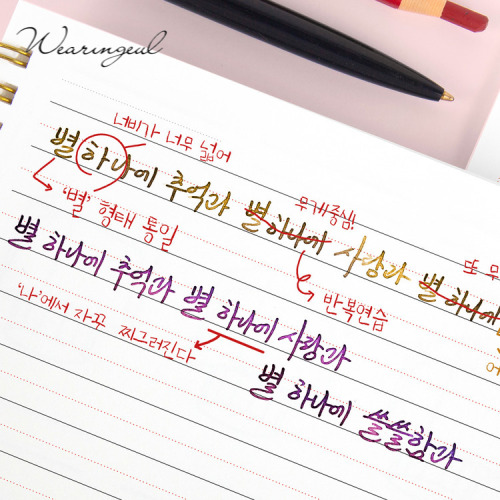 Wearingeul
너비가 너무 넓어
별 하나에 추억과 별 하나에 사랑과 별 하나에
무게중심!
또 무
'별' 형태 통일
반복연습
별 하나에 추억과 별 하나에 사랑과
'나'에서 자꾸 찌그러진다
별 하나에 쓸쓸함과